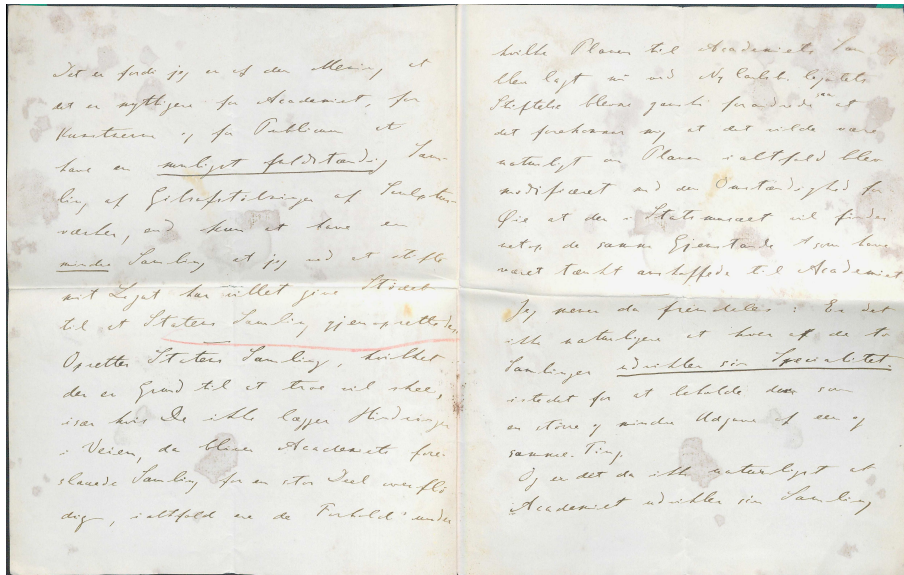 Det er fordi jeg er af den Mening at
det er nyttigere for Academiet, for
Kunstnerne og for Publicum at
have en muligst fuldstændig Sam-
ling af Gibsafstøbninger af Sculptur-
værker, end kun at have en
mindre Samling at jeg ved at stifte
mit Legat har villet give Stødet
til at Statens Samling gjenoprettedes
Opretter Staten Samling, hvilket
der er Grund til at troe vil skee,
især hvis De ikke lægger Hindringer
i Veien, da bliver Academiets fore-
slaaede Samling for en stor Deel overflø
dig, ialtfald ere de Forhold under
hvilke Planen til Academiets Sam
blev lagt ved Ny Carlsb. Legatets
Stiftelse blevne ganske forandrede saa at
det forekommer mig at det vilde være
naturligt om Planen ialtfald blev
modificeret med den Omstændighed for
Øie at der i Statsmuseet vil findes
netop de samme Gjenstande som have
været tænkt anskaffede til Academiet
Jeg mener da fremdeles: Er det
ikke naturligere at hver af de to
Samlinger udvikler sin Specialitet
istedet for at beholde dem som
en større og mindre Udgave af een og
samme Ting.
Og er det da ikke naturligst at
Academiet udvikler sin Samling